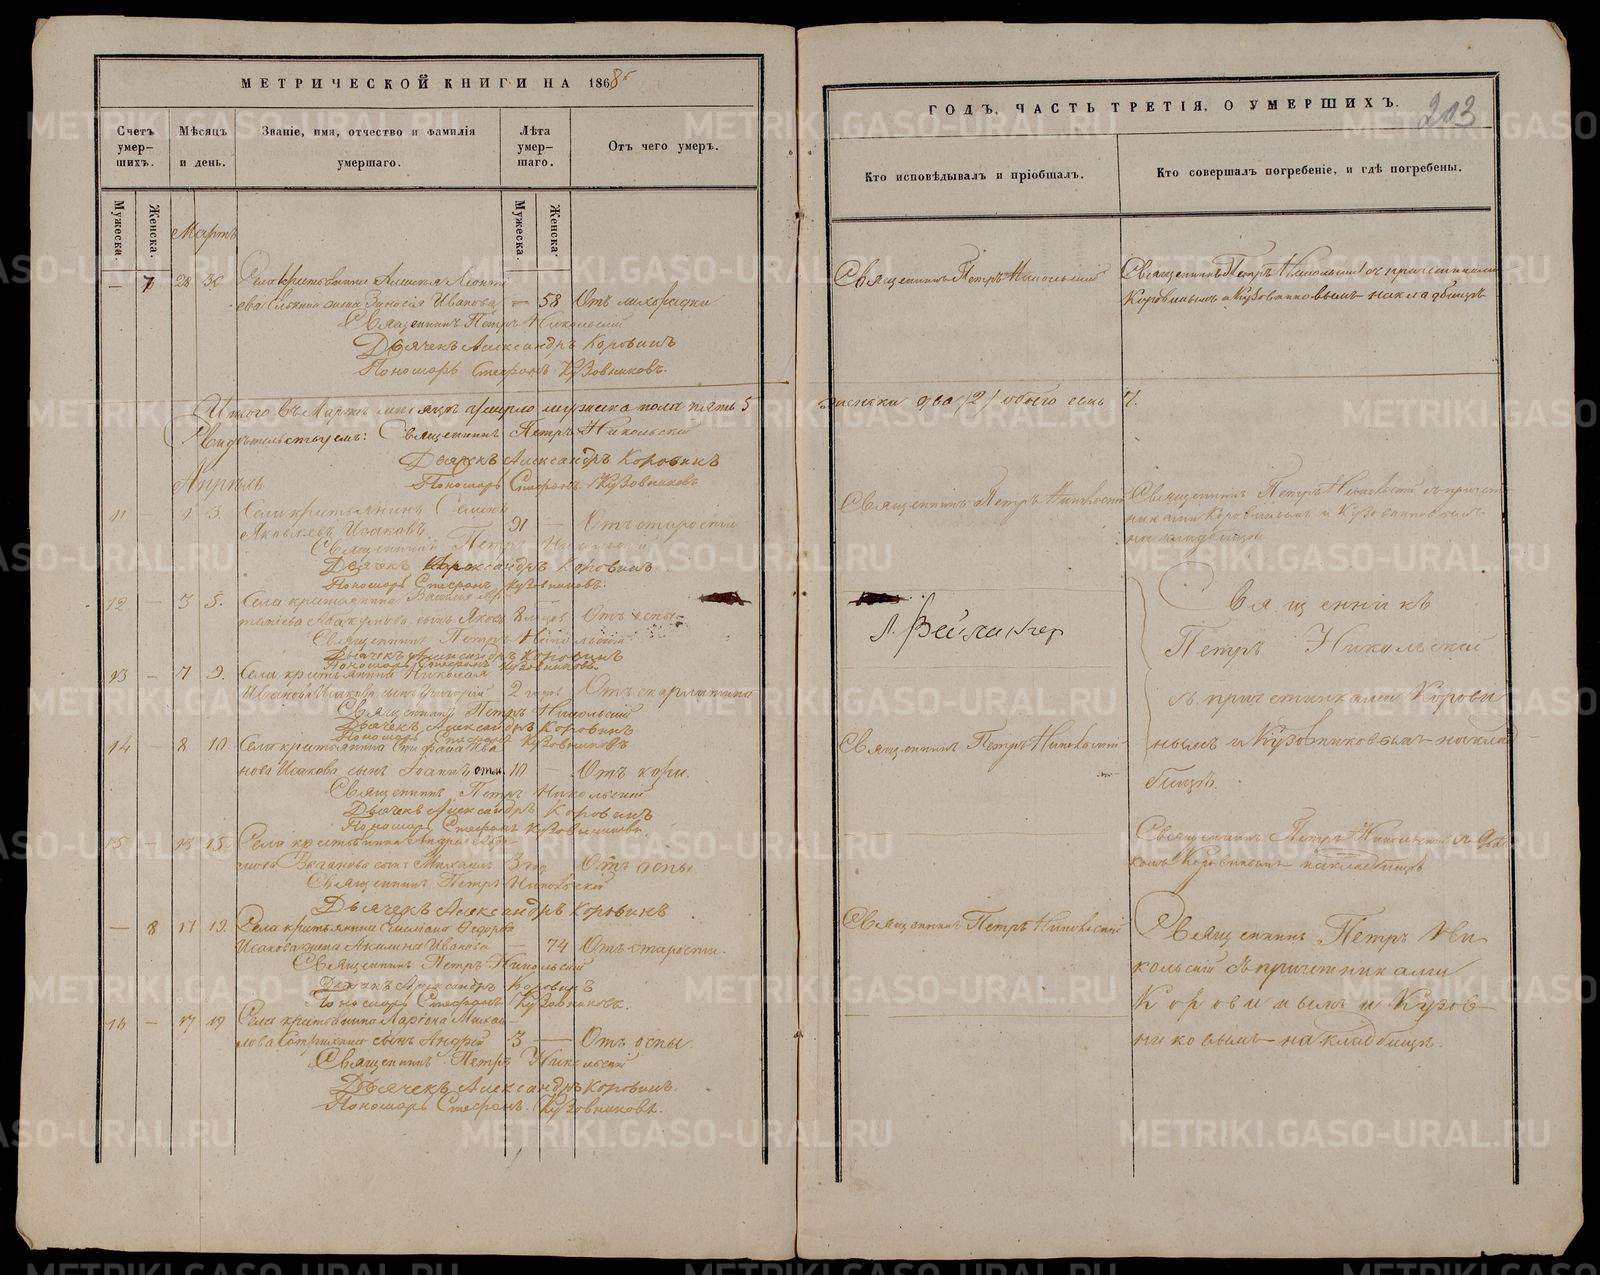 МЕТРИЧЕСКОЙ КНИГИ НА 1868
Счетъ умер- шихъ.
Мѣсяцъ и день.
Званіе, имя, отчество и фамилія умершаго.
Лѣта умер- шаго.
Отъ чего умеръ.
Мужеска.
Женска.
Мужеска.
Женска.
Мартъ
— 7 28 30
— 58 Отъ лихорадки
Священникъ Петръ Никольскій
Дьячекъ Александръ Коровинъ
Пономарь Стефанъ Кузовниковъ.
Итого въ Мартѣ мѣсяцѣ умерло мужеска пола пять 5
Свидѣтельствуемъ: Священникъ Петръ Никольскій
Дьячекъ Александръ Коровинъ
Пономарь Стефанъ Кузовниковъ
Апрѣль
11 — 1 3. Села крестьянинъ Семенъ
Яковлевъ Исаковъ 91 — Отъ старости
Священникъ Петръ Никольскій
Дьячекъ Александръ Коровинъ
Пономарь Стефанъ Кузовниковъ.
12 — 3 5. Села крестьянина
сынъ Яковъ 8 Отъ оспы
Священникъ Петръ Никольскій
Дьячекъ Александръ Коровинъ
Пономарь Стефанъ Кузовниковъ.
13 — 7 9. Села крестьянина Николая
сынъ Григорій 2 Отъ скарлатины
Священникъ Петръ Никольскій
Дьячекъ Александръ Коровинъ
Пономарь Стефанъ Кузовниковъ
14 — 8 10. Села крестьянина Стефана Ива
нова Исакова сынъ Іоаннъ 10 — Отъ кори.
Священникъ Петръ Никольскій
Дьячекъ Александръ Коровинъ
Пономарь Стефанъ Кузовниковъ.
15 — 13 15. Села крестьянина Андрея
сынъ Михаилъ 3 Отъ оспы
Священникъ Петръ Никольскій
Дьячекъ Александръ Коровинъ
— 8 17 19. Села крестьянина Ѳедорова
Исакова жена Акилина Иванова — 74 Отъ старости.
Священникъ Петръ Никольскій
Дьячекъ Александръ Коровинъ
Пономарь Стефанъ Кузовниковъ.
16 — 17 19 Села крестьянина Ларіона Михаи
лова сынъ Андрей 3 — Отъ оспы
Священникъ Петръ Никольскій
Дьячекъ Александръ Коровинъ.
Пономарь Стефанъ Кузовниковъ.
ГОДЪ, ЧАСТЬ ТРЕТІЯ, О УМЕРШИХЪ.
203
Кто исповѣдывалъ и пріобщалъ.
Кто совершалъ погребеніе, и гдѣ погребены.
Священникъ Петръ Никольскій
Священникъ Петръ Никольскій съ причетниками
Коровинымъ и Кузовниковымъ на кладбищѣ
женска два /2/ обоего семь 7.
Священникъ Петръ Никольскій
Священникъ Петръ Никольскій съ причет
никами Коровинымъ и Кузовниковымъ
на кладбищѣ
Священникъ
Петръ Никольскій
съ причетниками Корови
нымъ и Кузовниковымъ на клад
бищѣ.
Священникъ Петръ Никольскій
Священникъ Петръ Никольскій съ дьяч
комъ Коровинымъ на кладбищѣ
Священникъ Петръ Никольскій
Священникъ Петръ Ни
кольскій съ причетниками
Коровинымъ и Кузов
никовымъ на кладбищѣ.
METRIKI.GASO-URAL.RU